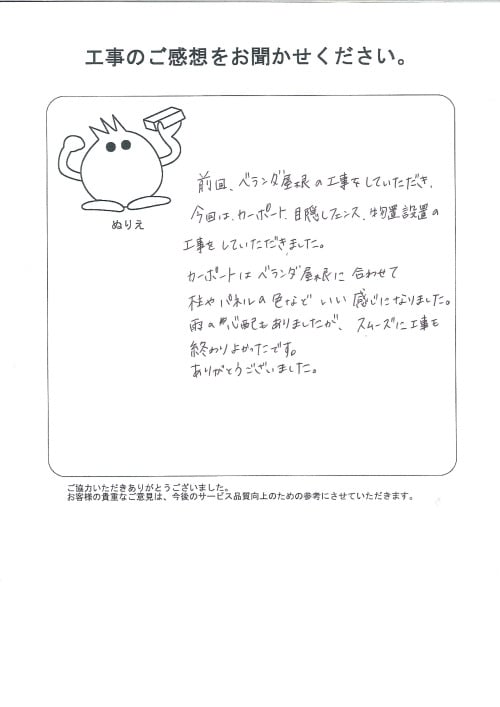 工事のご感想をお聞かせください。
ぬりえ
前回、ベランダ屋根の工事をしていただき、
今回は、カーポート、目隠しフェンス、物置設置の
工事をしていただきました。
カーポートはベランダ屋根に合わせて
柱やパネルの色など いい感じになりました。
雨の心配もありましたが、スムーズに工事も
終わりよかったです。
ありがとうございました。
ご協力いただきありがとうございました。
お客様の貴重なご意見は、今後のサービス品質向上のための参考にさせていただきます。